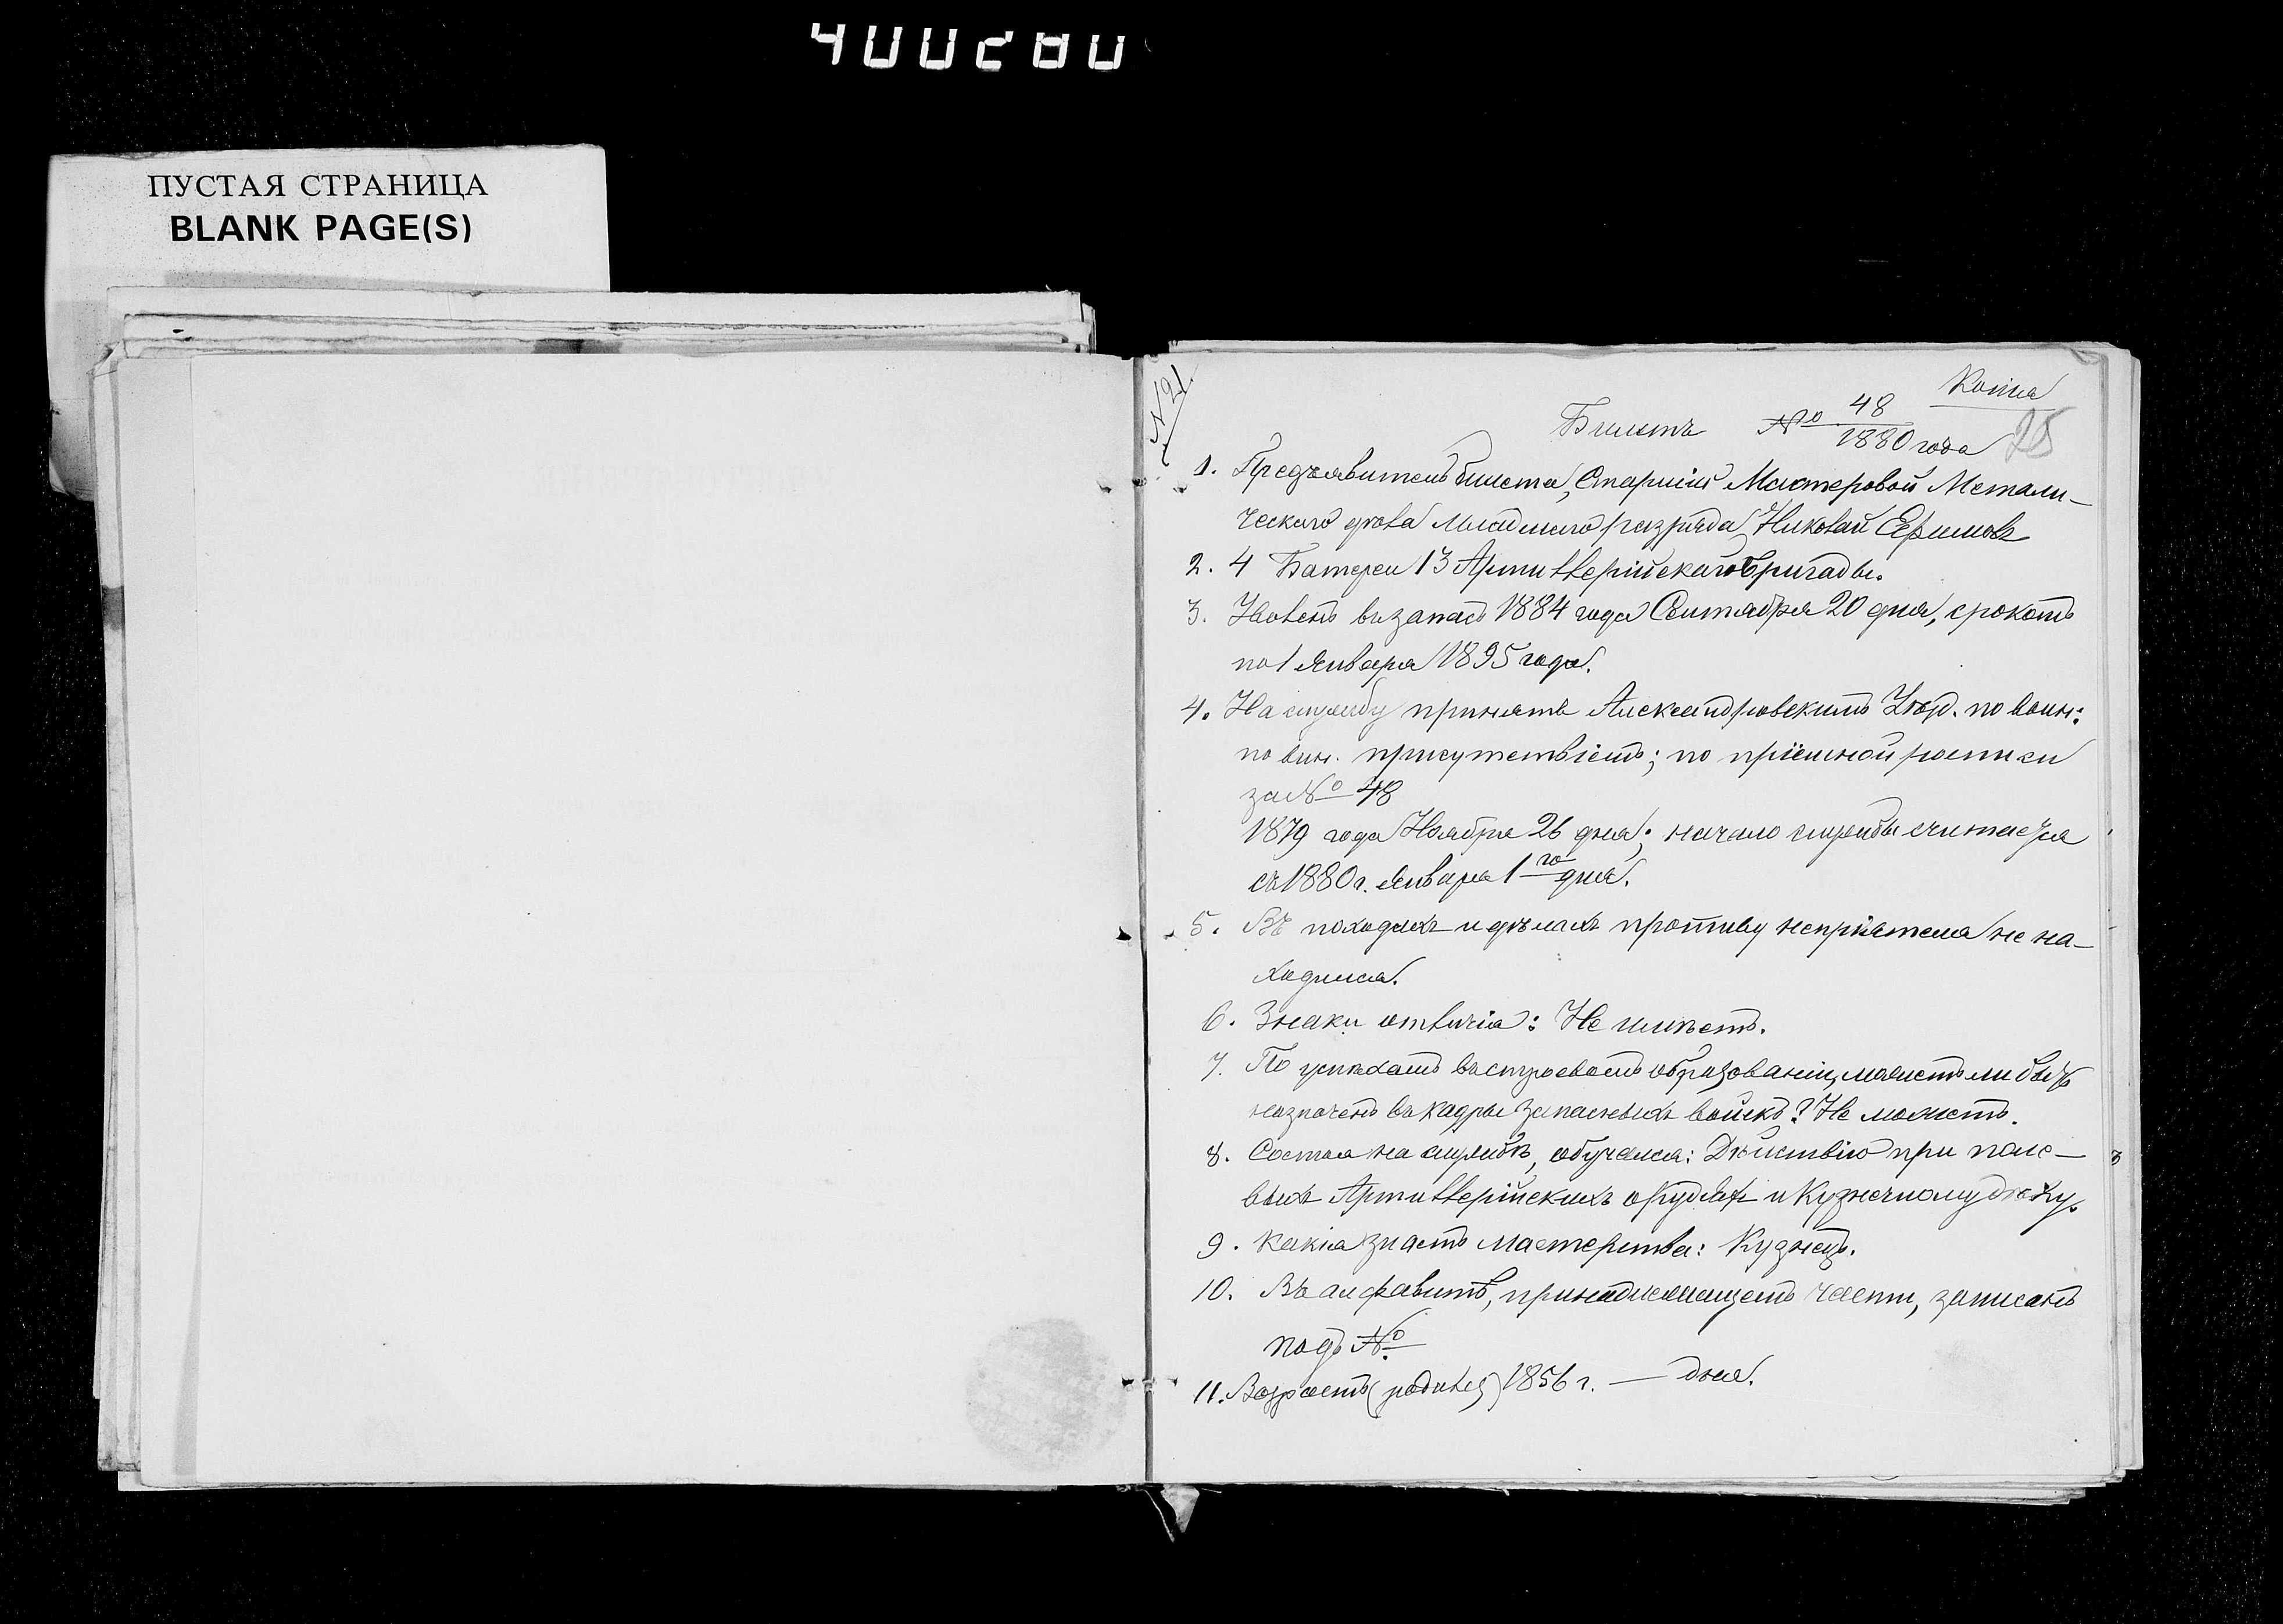 400280
ПУСТАЯ СТРАНИЦА
BLANK PAGE(S)
№ 21
Копия
Билетъ № 48
1880 года
25
1. Предъявитель билета, Старшій Мастеровой Метали-
ческаго дѣла младшаго разряда, Николай Ефимовъ
2. 4 Батереи 13 Артиллерійской бригады.
3. Уволенъ въ запасъ 1884 года Сентября 20 дня, срокомъ
по 1 Января 1895 года.
4. На службу принятъ Александровскимъ Уѣзд. по воин:
по вин. присутствіемъ; по пріемной росписи
за № 48
1879 года Ноября 26 дня; начало службы считается
съ 1880 г. Января 1го дня.
5. Въ походахъ и дѣлахъ противу непріятеля не на-
ходился.
6. Знаки отличія: Не имѣетъ.
7. По успѣхамъ въ строевомъ образованіи, можетъ ли быть
назначенъ въ кадры запасныхъ войскъ? Не можетъ.
8. Состоя на службѣ, обучался: Дѣйствію при поле-
выхъ Артиллерійскихъ орудіяхъ и Кузнечному дѣлу.
9. Какія знаетъ мастерства: Кузнецъ.
10. Въ алфавитѣ, принадлежащемъ части, записанъ
подъ №
11. Возрастъ (родился) 1856 г. — дня.